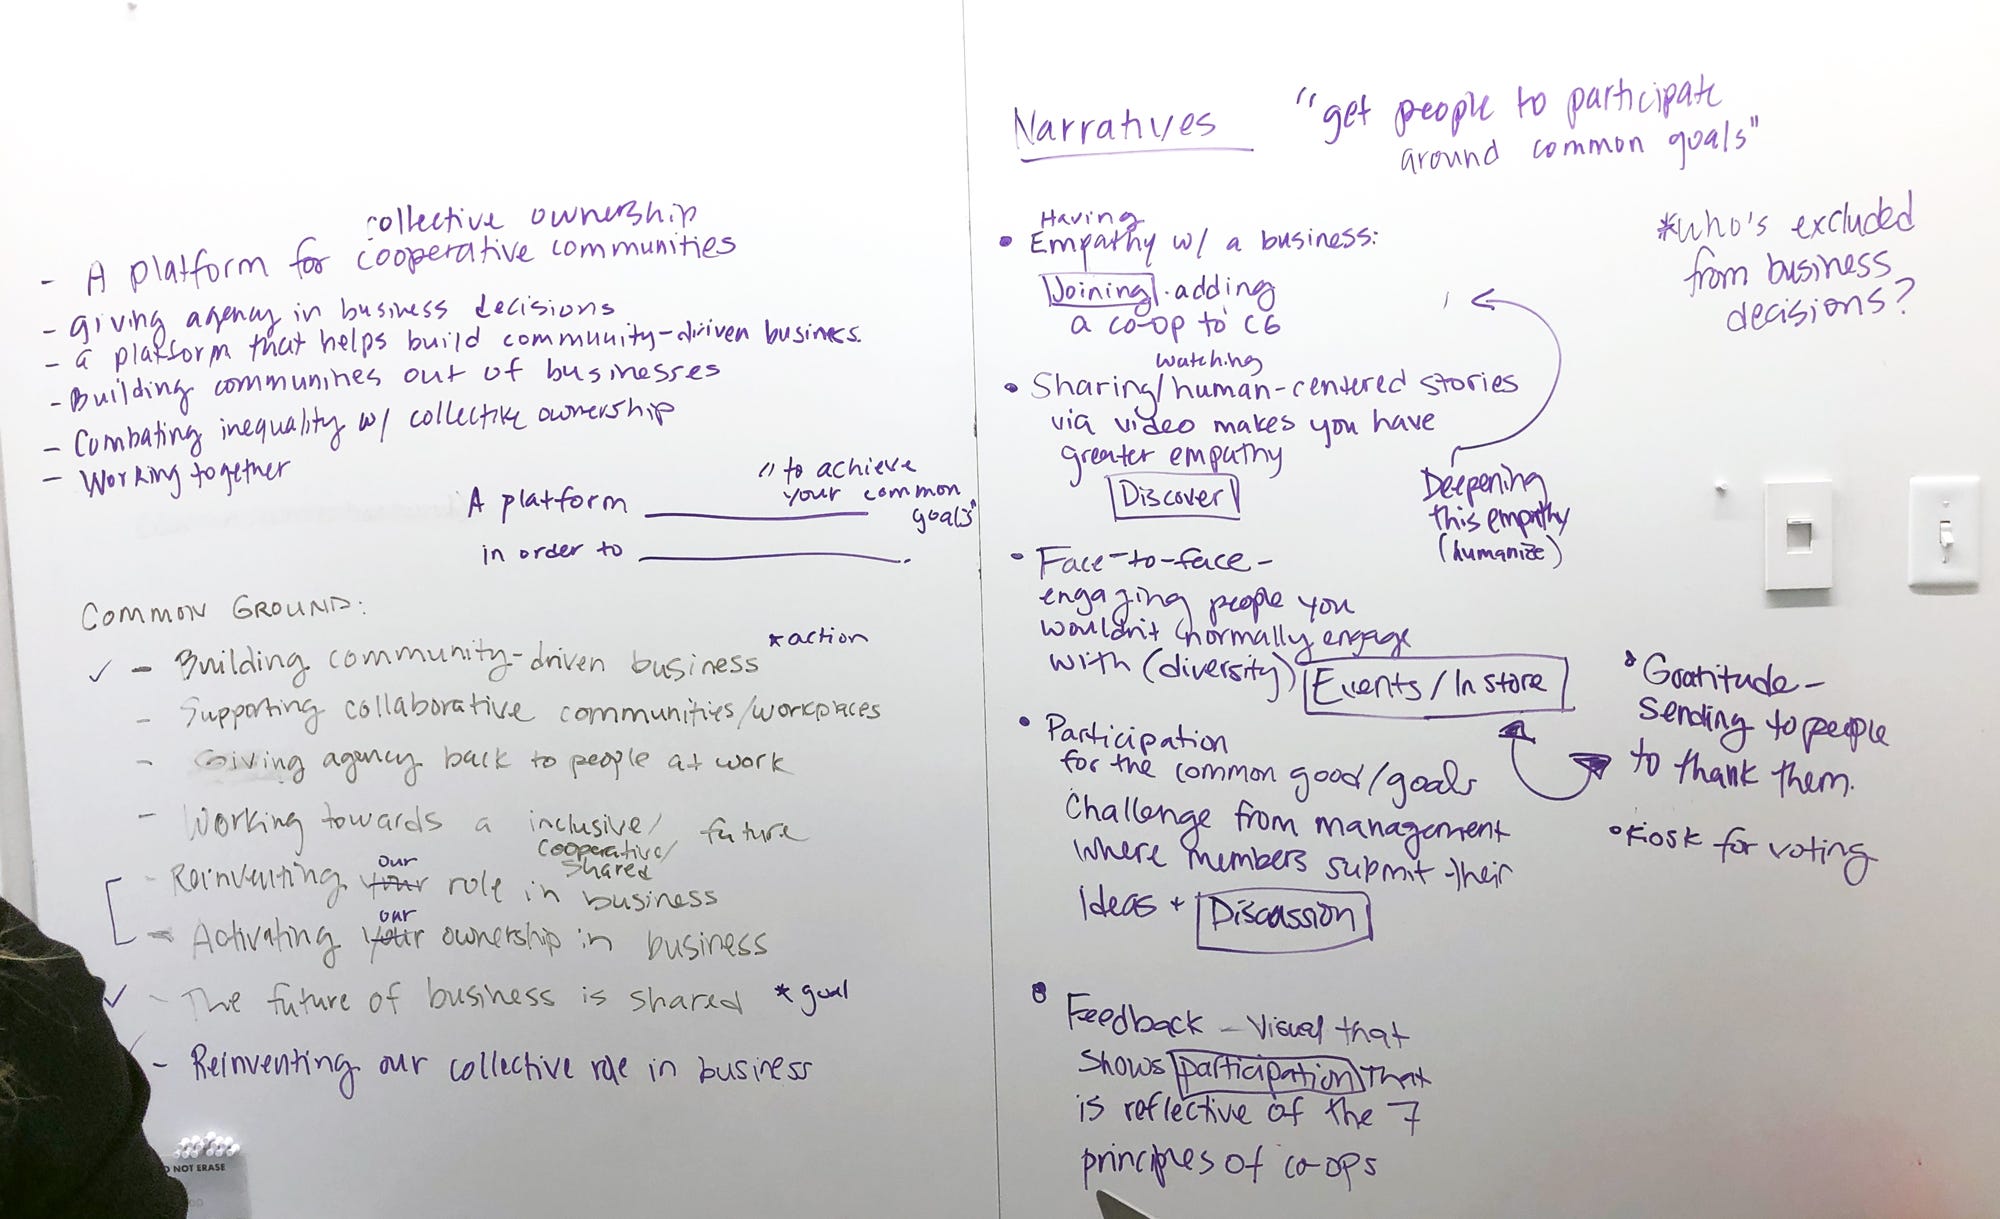 collective ownership
- A platform for cooperative communities
- giving agency in business decisions
- a platform that helps build community-driven business.
- Building communities out of businesses
- Combating inequality w/ collective ownership
- Working together
A platform ________ "to achieve
your common
goals"
in order to ________.
COMMON GROUND:
✓ - Building community-driven business *action
- Supporting collaborative communities/workplaces
- Giving agency back to people at work
- Working towards a inclusive/ future
cooperative/
shared
our
- Reinventing your role in business
our
- Activating your ownership in business
✓ - The future of business is shared *goal
- Reinventing our collective role in business
DO NOT ERASE
Narratives
"get people to participate
around common goals"
*who's excluded
from business
decisions?
Having
• Empathy w/ a business:
Joining. adding
a co-op to CG
watching
• Sharing/human-centered stories
via video makes you have
greater empathy
Discover
Deepening
this empathy
(humanize)
• Face-to-face-
engaging people you
wouldn't normally engage
with (diversity) Events/In store
• Participation
for the common good/goals
Challenge from management
where members submit their
ideas + Discussion
• Feedback - Visual that
shows participation that
is reflective of the 7
principles of co-ops
• Gratitude -
Sending to people
to thank them.
• Kiosk for voting